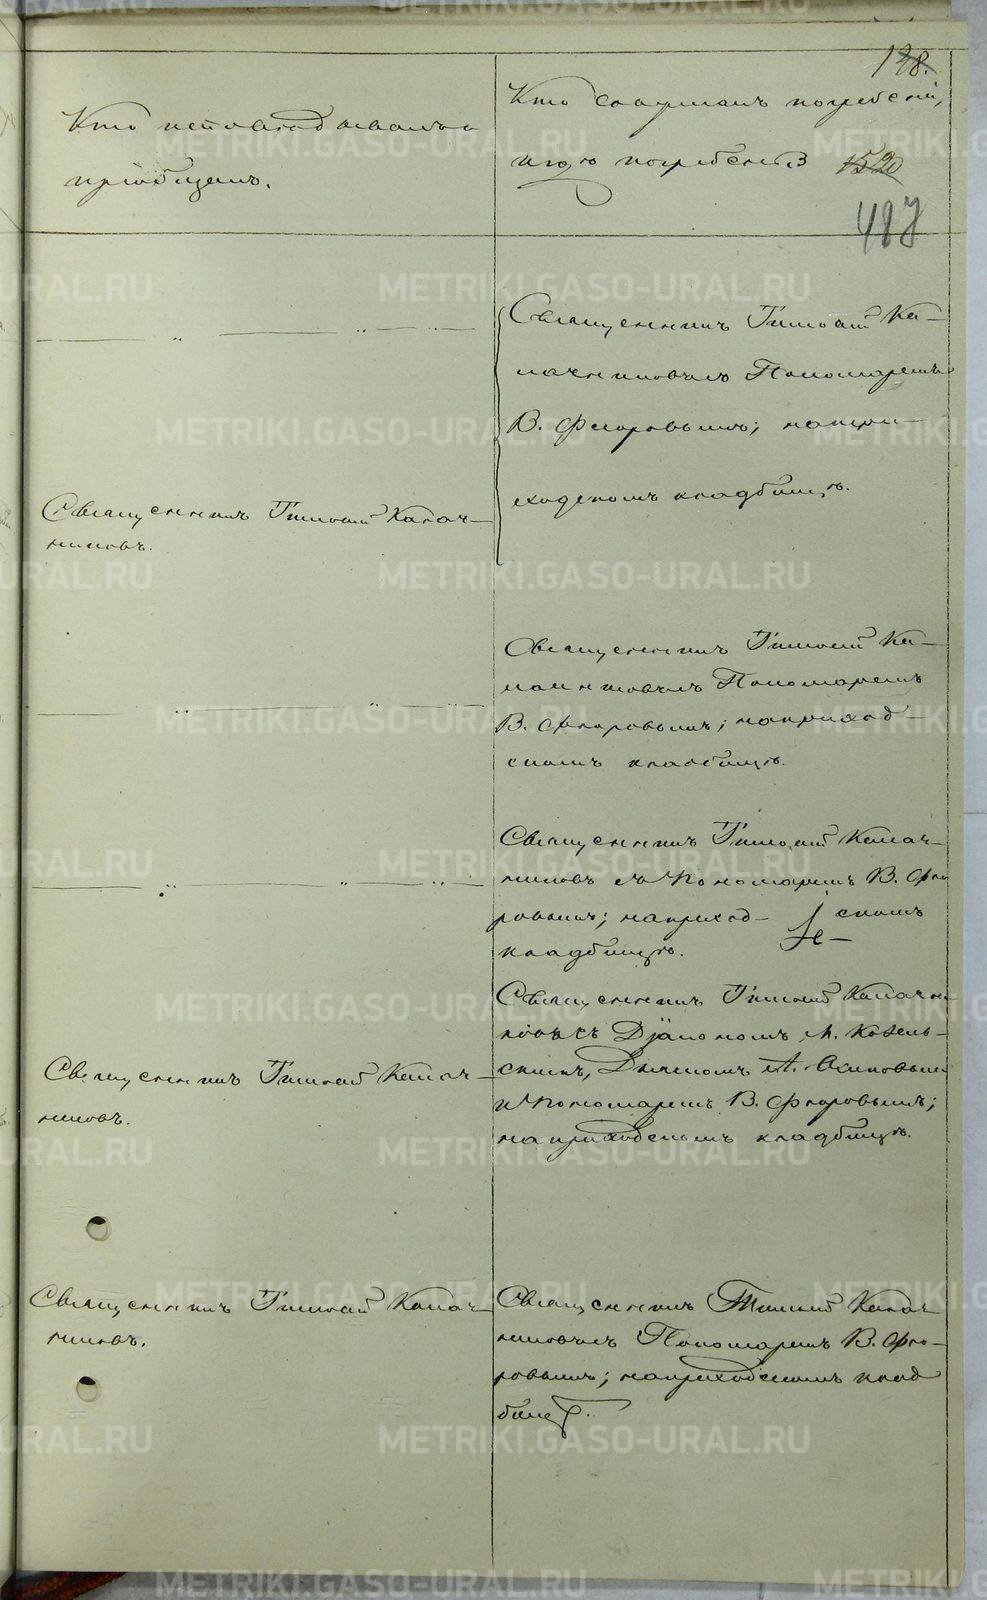 138.
Кто исповѣдывалъ и
пріобщалъ.
Кто совершалъ погребеніе,
и гдѣ погребены
1520
487
Священникъ Тимофей Ка-
лачниковъ съ Пономаремъ
В. Флоровымъ; на при-
ходскомъ кладбищѣ.
Священникъ Тимофей Калач-
никовъ.
Священникъ Тимофей Ка-
лачниковъ съ Пономаремъ
В. Флоровымъ; на приход-
скомъ кладбищѣ.
Священникъ Тимофей Калач-
никовъ съ Пономаремъ В. Фло
ровымъ; на приход- скомъ
кладбищѣ.
Священникъ Тимофей Калачни
ковъ съ Діакономъ
Дьячкомъ А. Осиповымъ
и Пономаремъ В. Флоровымъ;
на приходскомъ кладбищѣ.
Священникъ Тимофей Калач-
никовъ.
Священникъ Тимофей Калач-
никовъ.
Священникъ Тимофей Калач
никовъ съ Пономаремъ В. Фло-
ровымъ; на приходскомъ клад
бищѣ.
METRIKI.GASO-URAL.RU